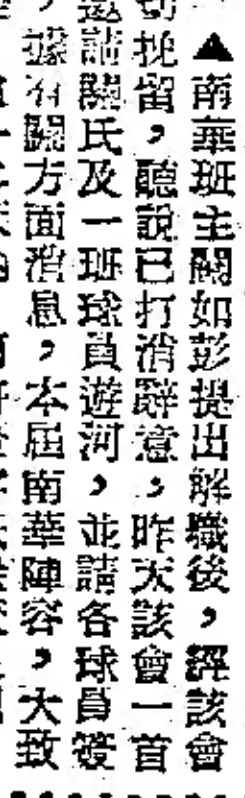 ▲南華班主關如彭提出解職後，經該會
切挽留，聽說已打消辭意，昨天該會一首
邀請關氏及一班球員遊河，並請各球員簽
，據有關方面消息，本屆南華陣容，大致